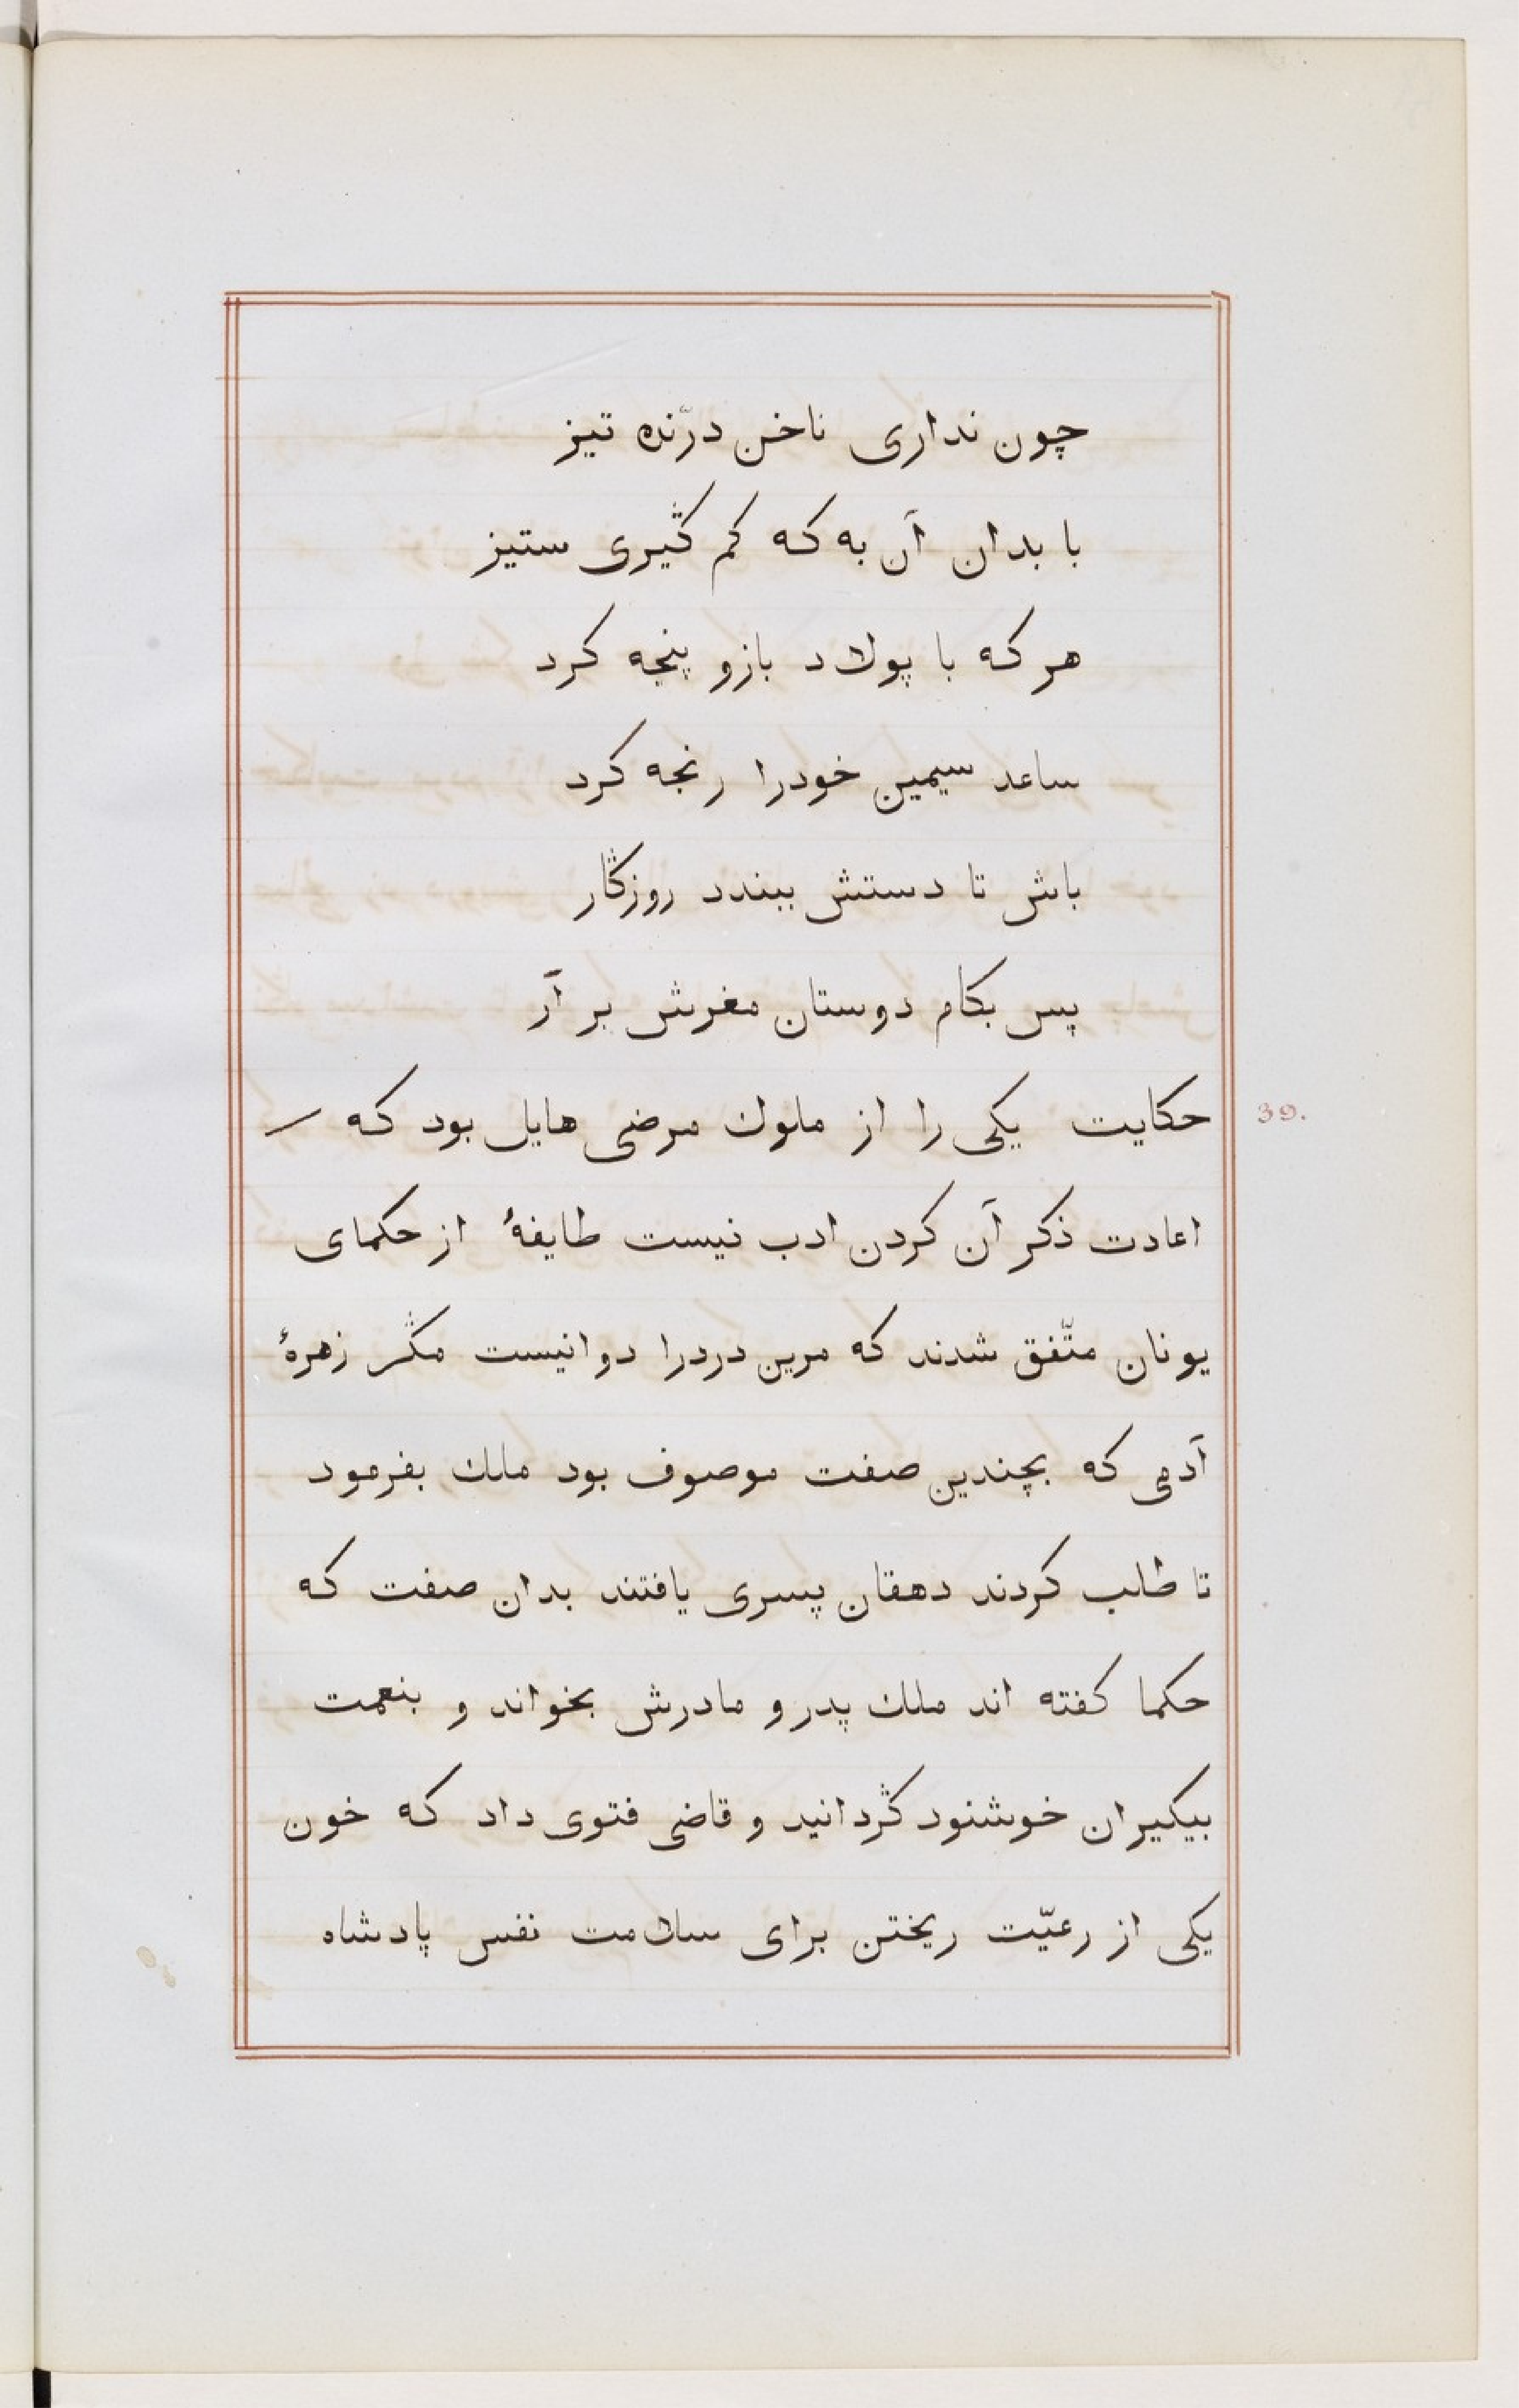 چون نداری ناخن درّنده تیز
با بدان آن به که کم گیری ستیز
هر که با پولاد بازو پنجه کرد
ساعد سیمین خودرا رنجه کرد
باش تا دستش ببندد روزگار
پس بکام دوستان مغزش بر آر
حکایت یکی را از ملوك مرضی هایل بود که
39.
اعادت ذکر آن کردن ادب نیست طایفهٔ از حکمای
یونان متّفق شدند که مرین دردرا دوا نیست مگر زهرهٔ
آدمی که بچندین صفت موصوف بود ملك بفرمود
تا طلب کردند دهقان پسری یافتند بدان صفت که
حکما کفته اند ملك پدر و مادرش بخواند و بنعمت
بیکیران خوشنود گردانید و قاضی فتوی داد که خون
یکی از رعیّت ریختن برای سلامت نفس پادشاه